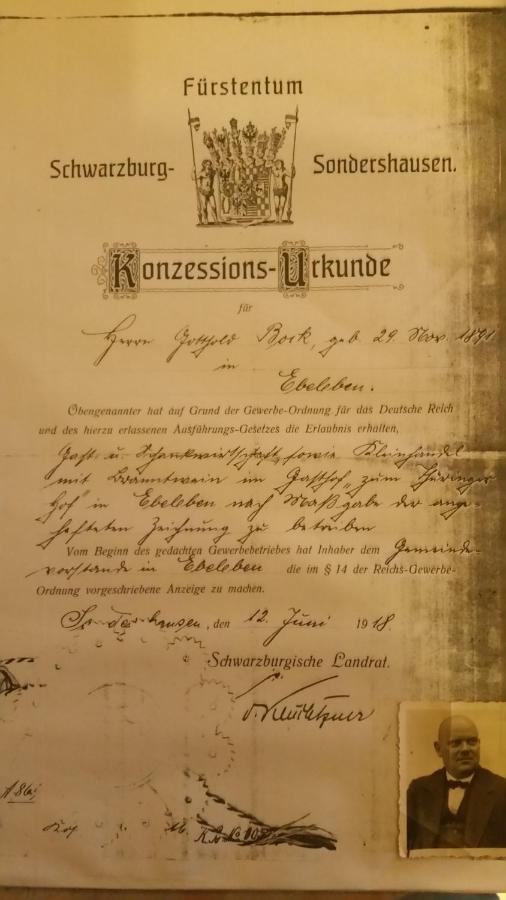 Fürstentum
Schwarzburg- Sondershausen.
Konzessions-Urkunde
für
Herrn Gotthold Bock, geb. 29. Nov. 1891
in
Ebeleben.
Obengenannter hat auf Grund der Gewerbe-Ordnung für das Deutsche Reich
und des hierzu erlassenen Ausführungs-Gesetzes die Erlaubnis erhalten,
Gast u. Schankwirtschaft, sowie Kleinhandel
mit Branntwein im Gasthof „zum Thüringer
Hof" in Ebeleben nach Maßgabe der ange-
hefteten Zeichnung zu betreiben
Vom Beginn des gedachten Gewerbebetriebes hat Inhaber dem Gemeinde-
vorstande in Ebeleben die im § 14 der Reichs-Gewerbe-
Ordnung vorgeschriebene Anzeige zu machen.
Sondershausen, den 12. Juni 1918.
Schwarzburgische Landrat.